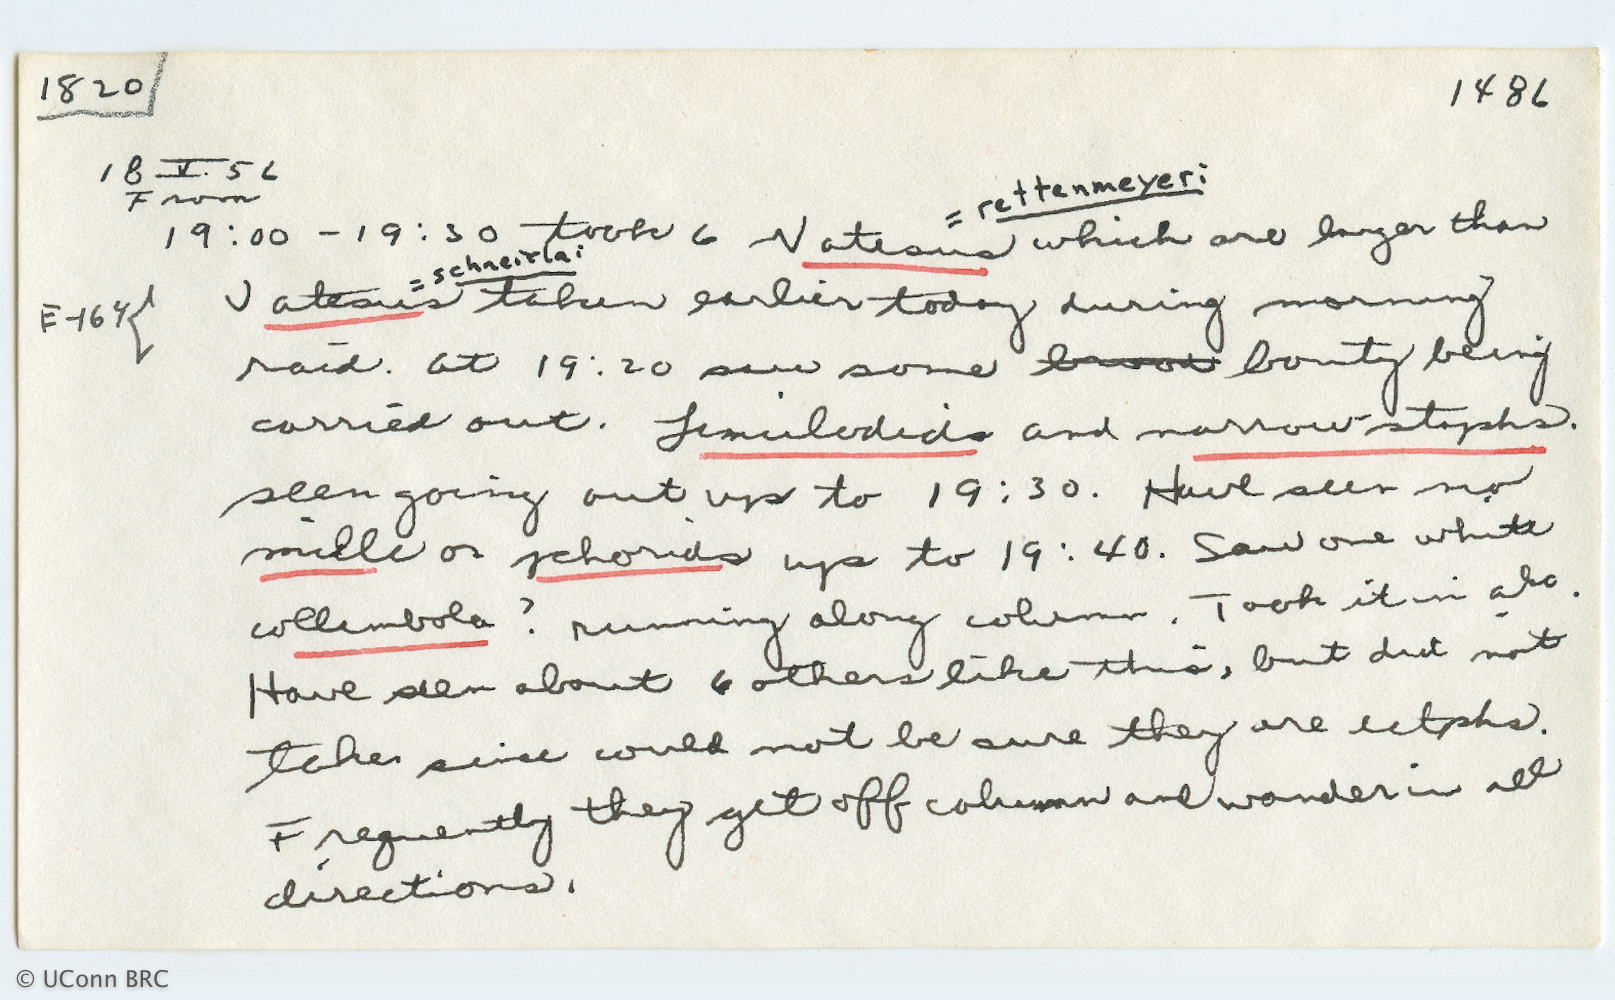 1820
1486
18 V. 56
From
= rettenmeyeri
19:00 - 19:30 took 6 Vatesus which are larger than
= schneirlai
E-164 { Vatesus taken earlier today during morning
raid. At 19:20 saw some brood booty being
carried out. Limulodids and narrow staphs.
seen going out up to 19:30. Have seen no
mille or phorids up to 19:40. Saw one white
collembola? running along column. Took it in alc.
Have seen about 6 others like this, but did not
take since could not be sure they are ectphs.
Frequently they get off column and wander in all
directions.
© UConn BRC